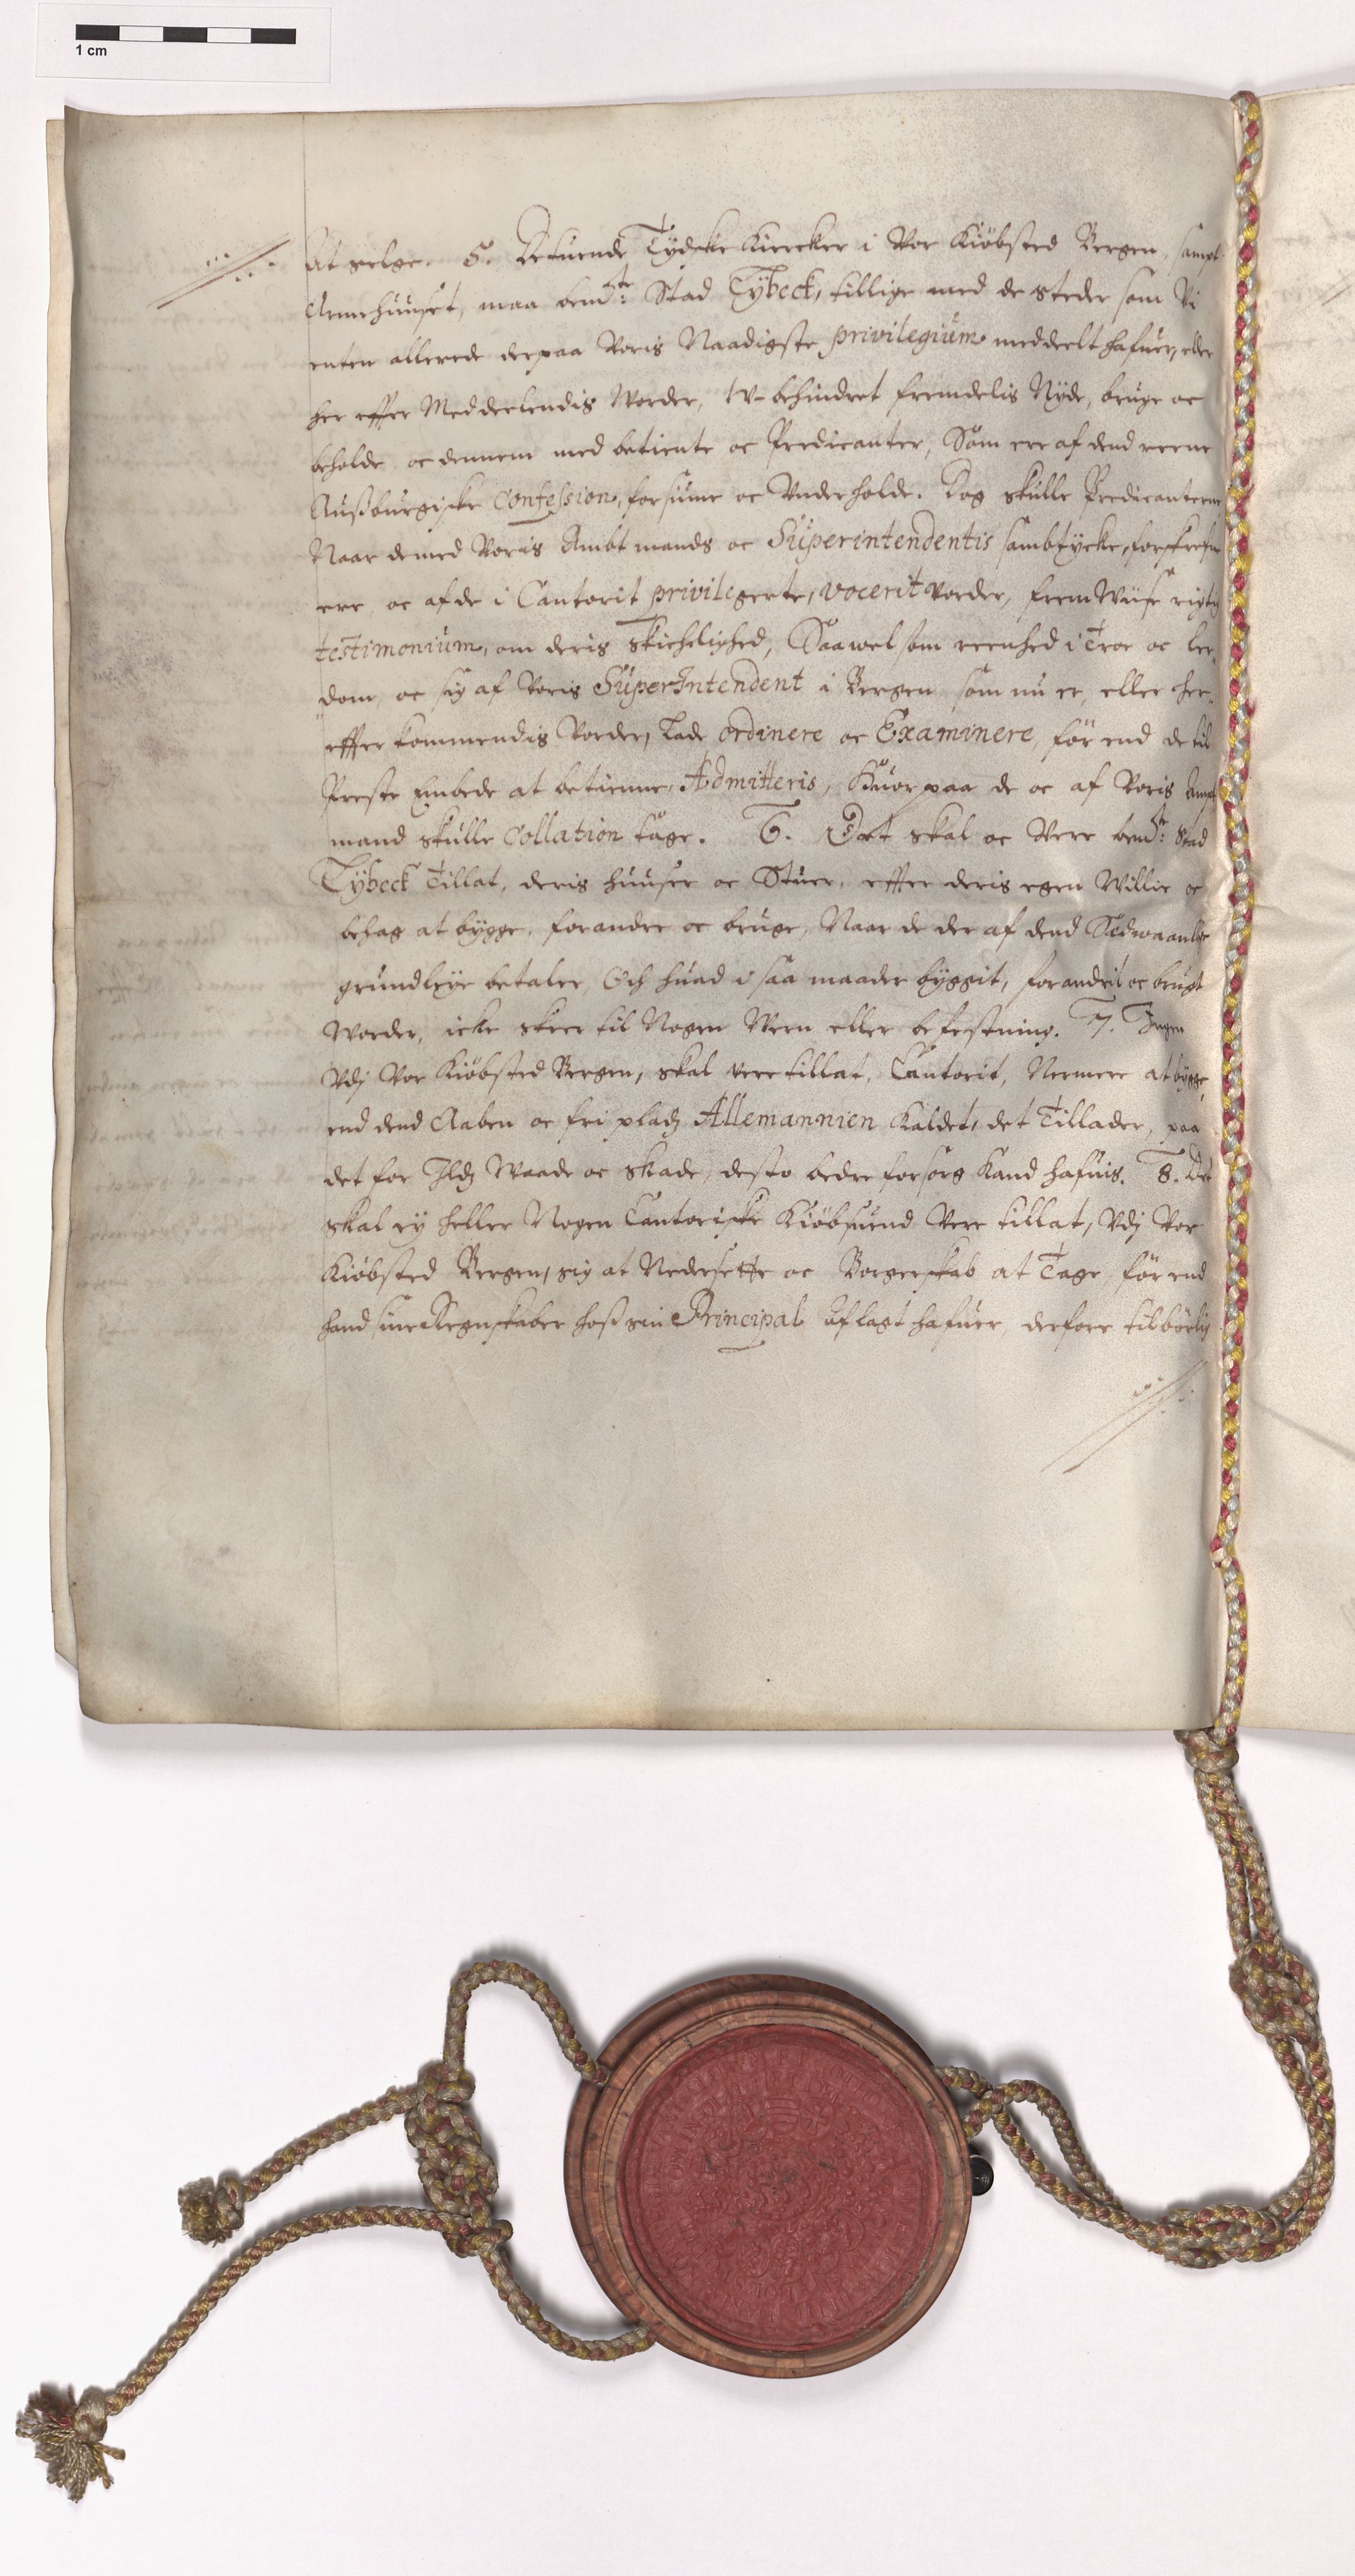 1 cm
At selge. 5. Refuende Tydske Kiercker i Vor Kiöbsted Bergen, sampt
Armehuuset, maa bemte: Stad Lybeck, tillige med de steder som Vi
enten allerede derpaa Voris Naadigste privilegium meddeelt hafuer, eller
her effter Meddeelendis Vorder, Vbehindret fremdelis Nyde, bruge oc
beholde, oc dennem med betiente oc Predicanter, Som ere af dend reene
Außburgiske Confession, forsiune oc Vnderholde. Dog skulle Predicanterne
Naar de med Voris Ambtmands oc Superintendentis sambtycke, forskrefne
ere, oc af de i Cantorit privilegerte, vocerit vorder, frem Wiise rigtig
testimonium, om deris Skickelighed, Saa wel som reenhed i Troe oc ler-
dom, oc sig af Voris SuperIntendent i Bergen, som nu er, eller her-
effter kommendis Vorder, Lade ordinere oc Examinere, för end de til
Preste Embede at betienne, Admitteris, Huorpaa de oc af Voris Ampt
mand skulle Collation tage. 6. Det skal oc Vere bemte: Stad
Lybeck Tillat, deris huuser oc Stuer, effter deris egen Willie oc
behag at bygge, forandre oc bruge, Naar de der af dend Sædwaanlige
grundleye betaler, Och huad i saa maader byggit, forandrit oc brugt
Vorder, icke skeer til Nogen Wern eller befestning. 7. Ingen
Vdj Vor Kiöbsted Bergen, skal vere tillat, Cantorit, Nermere at bygge,
end dend Aaben oc fri pladz Allemannien Kaldet, det Tillader, paa
det for Ildz Waade oc skade, desto bedre forsorg Kand hafuis. 8. Det
skal ey heller Nogen Cantoriske Kiöbsuend Vere tillat, Vdj Vor
Kiöbsted Bergen, sig at Nedersette oc Borgerskab at Tage, för end
hand sine Regnskaber hoß sin Principal aflagt hafuer, derfore tilbörlig